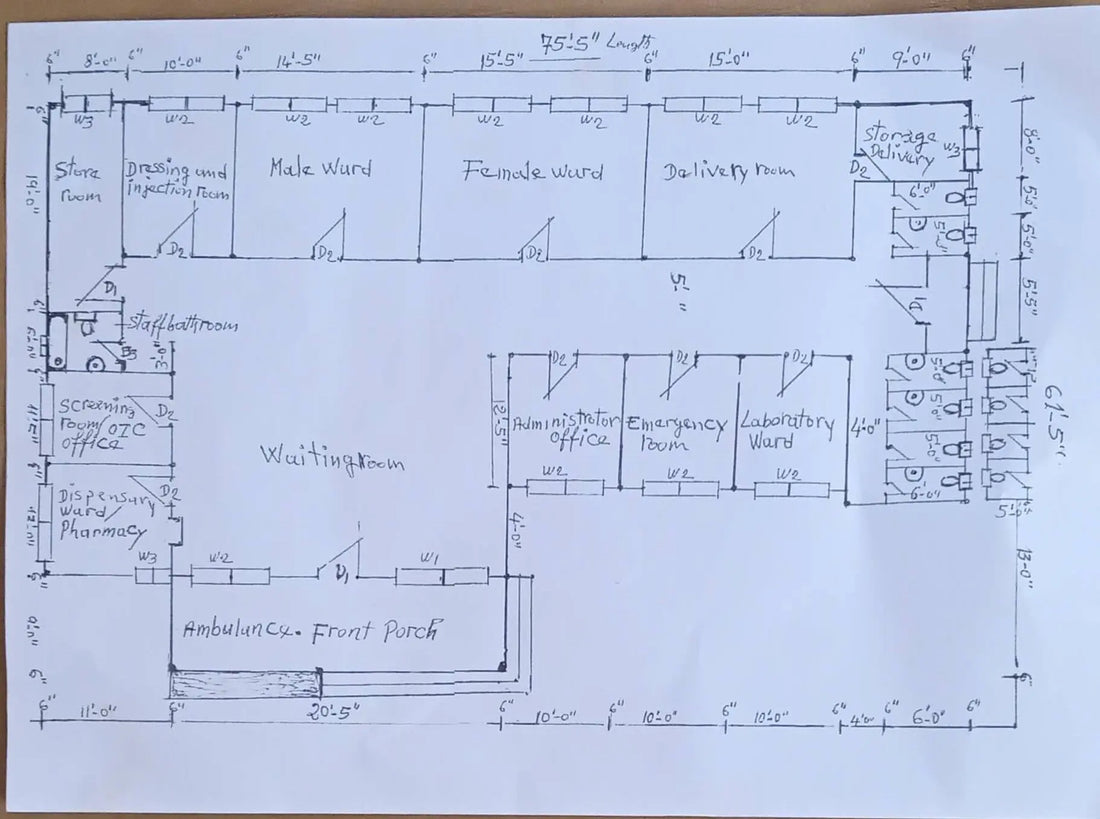 75'-5" Length
6" 8'-0" 6" 10'-0" 6" 14'-5" 6" 15'-5" 6" 15'-0" 6" 9'-0" 6"
W3 W2 W2 W2 W2 W2 W2 W2
6"
14'-0"
Store
room
Dressing and
injection room
Male Ward
Female Ward
Delivery room
Storage
Delivary
W3
D2
8'-0"
6'-0"
5'-0"
5'-0"
D2 D2 D2 D2
D1
5'-"
D1
5'-5"
staff bathroom
D3
3'-0"
D2 D2 D2
12'-5"
Administrator
office
Emergency
room
Laboratory
Ward
4'-0"
W2 W2 W2
5'-0"
5'-0"
5'-0"
6'-0"
5'-6"
61'-5"
Screening
room/OIC
office
D2
Waiting room
Dispensary
Ward/
Pharmacy
D2
12'-0"
W3 W2 D1 W1
4'-0"
13'-0"
Ambulance. Front Porch
6"
6"
6" 11'-0" 6" 20'-5" 6" 10'-0" 6" 10'-0" 6" 10'-0" 6" 4'-0" 6" 6'-0" 6"